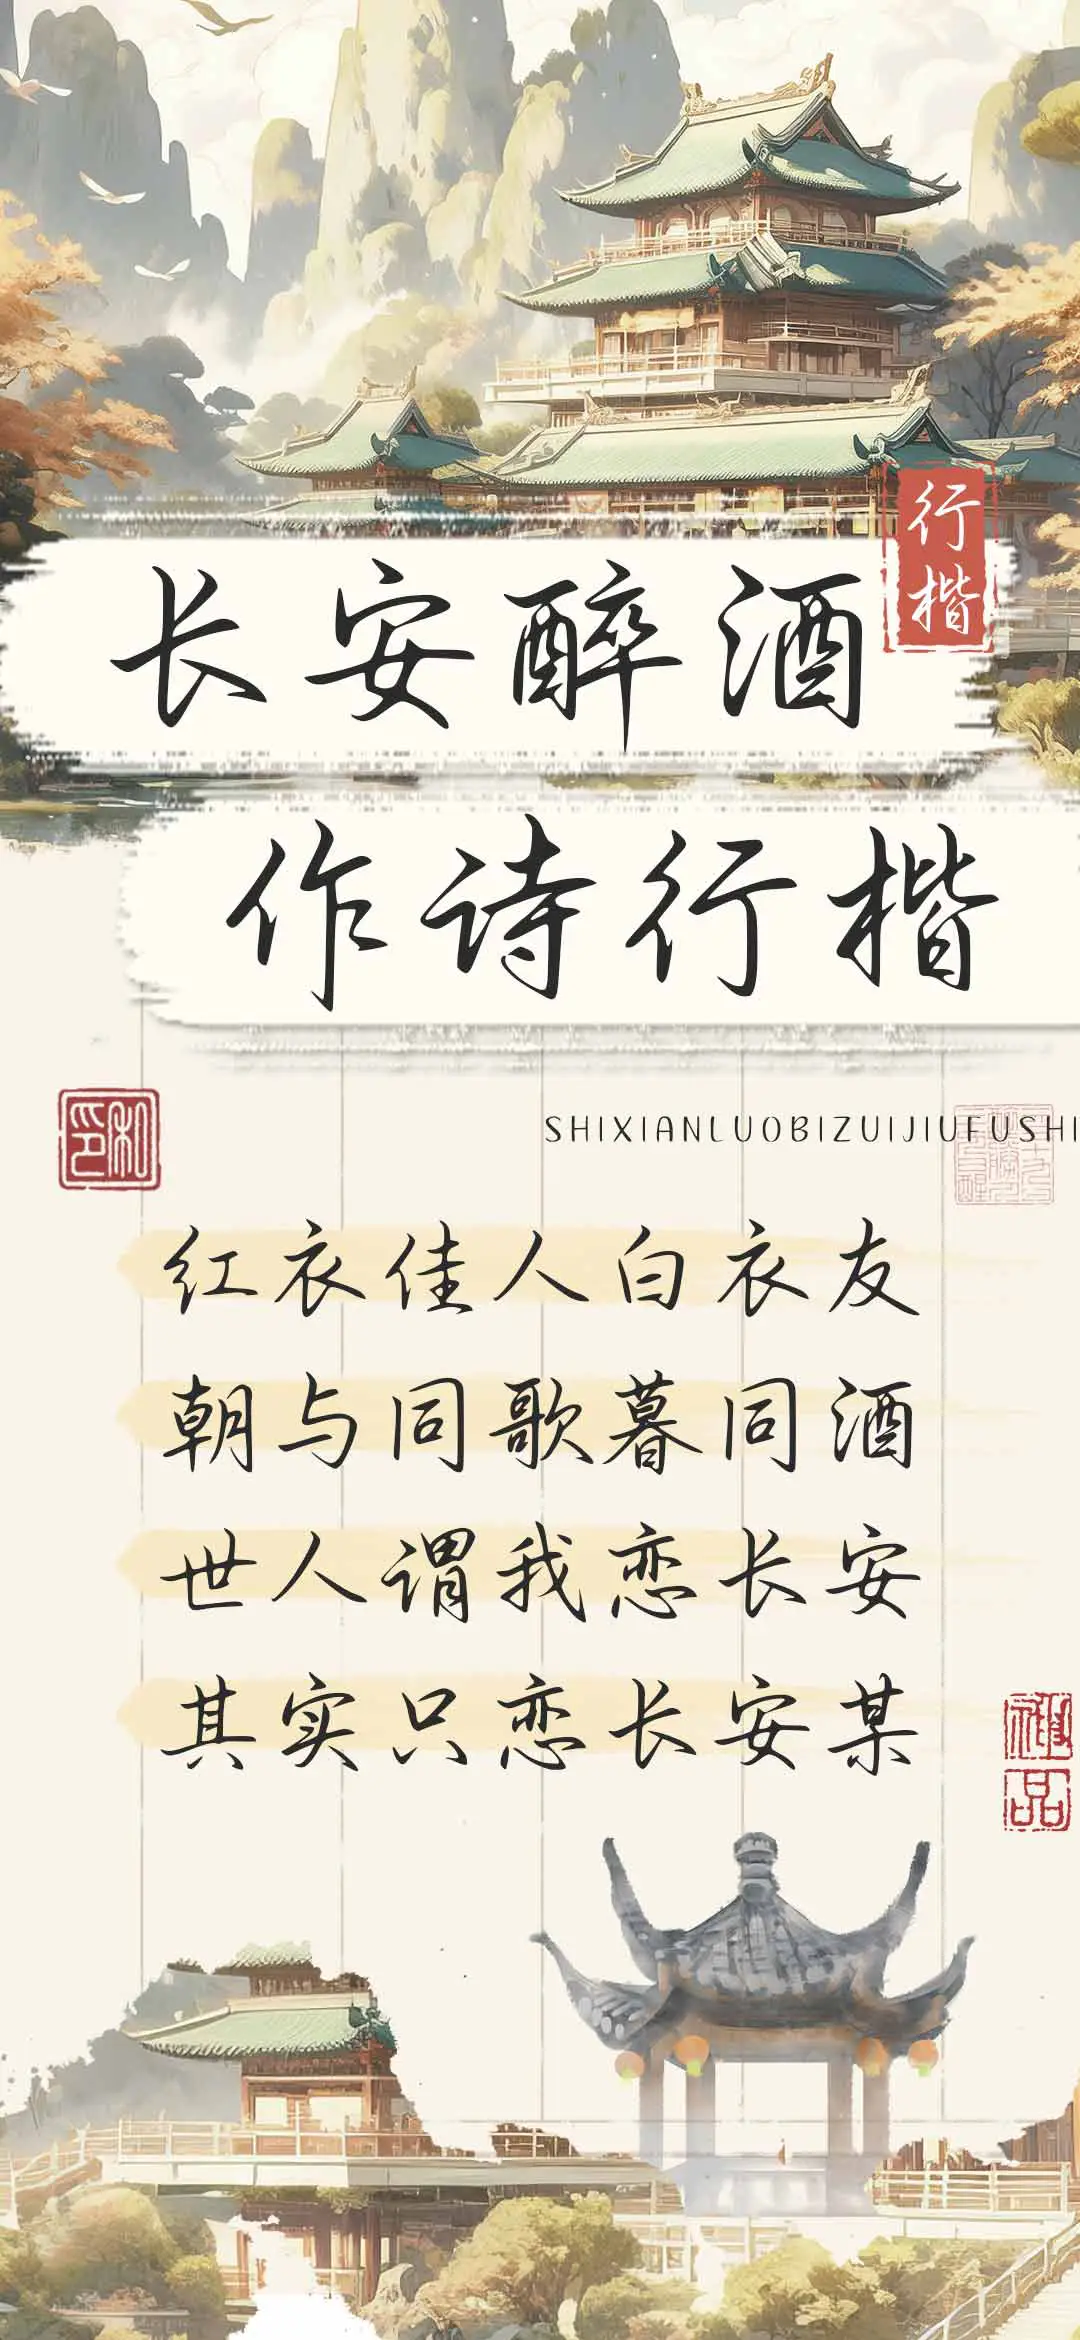 行楷
长安醉酒
作诗行楷
SHIXIANLUOBIZUIJIUFUSHI
红衣佳人白衣友
朝与同歌暮同酒
世人谓我恋长安
其实只恋长安某